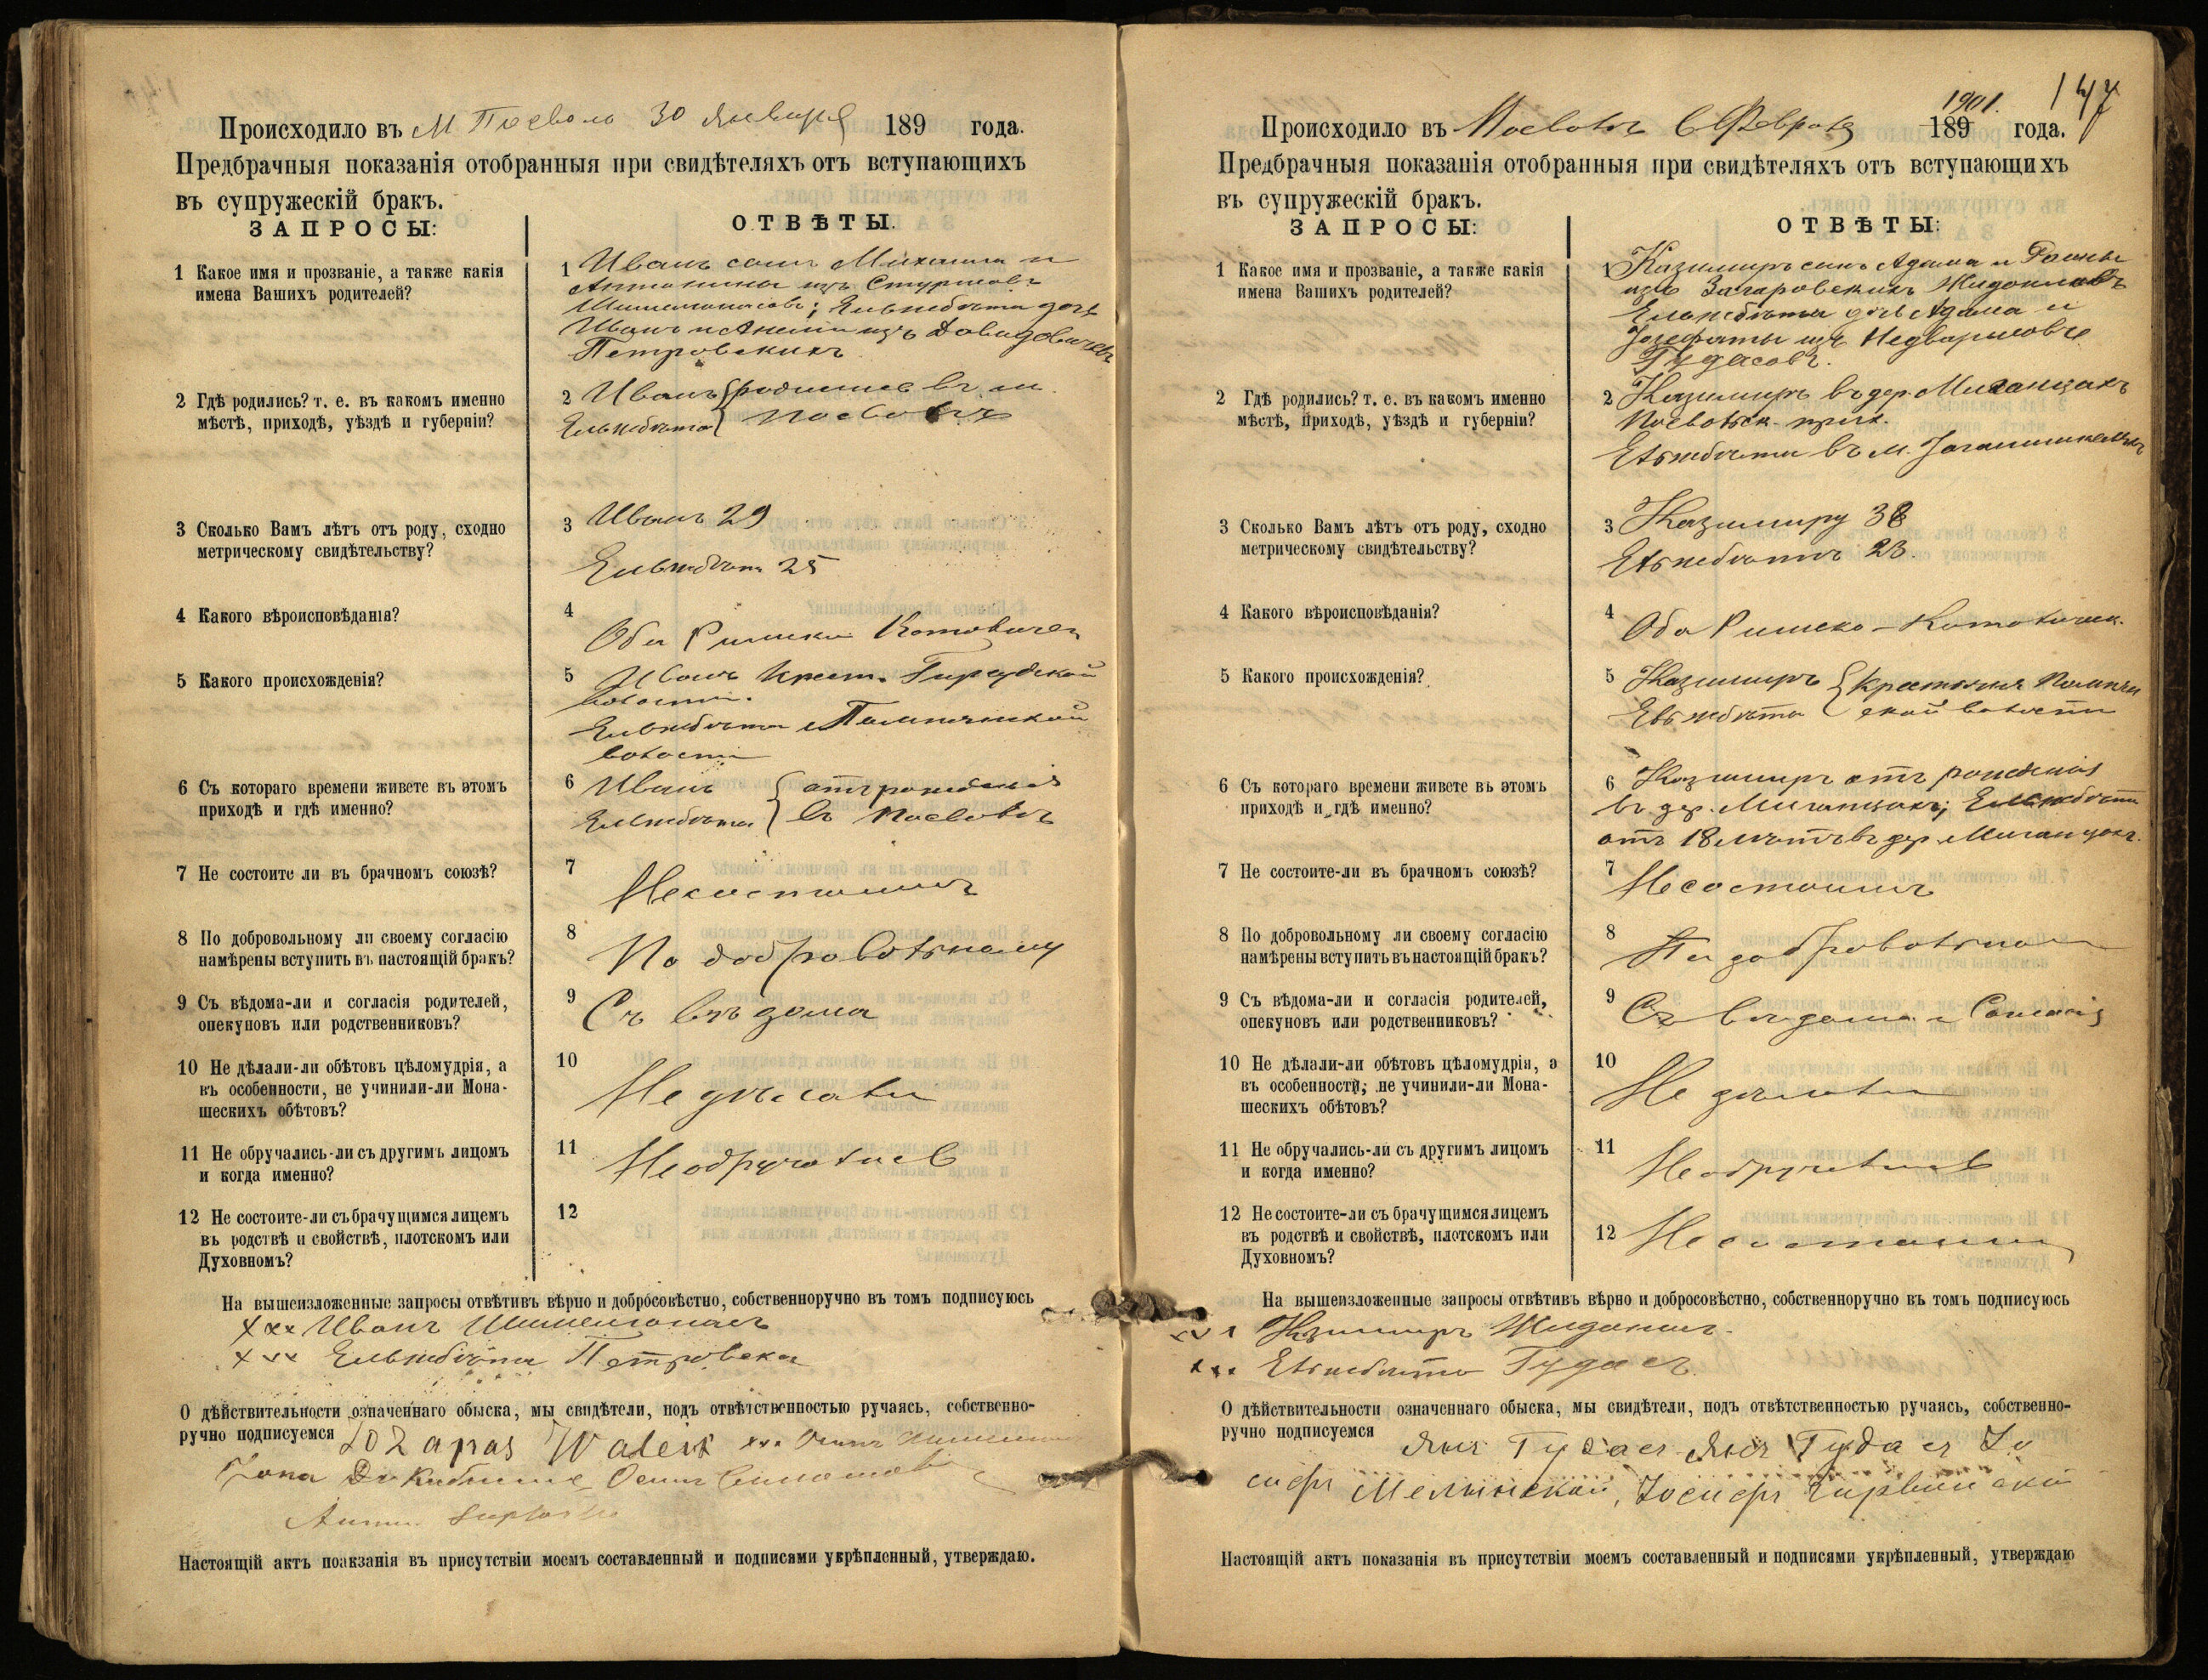 Происходило въ М Посволь 30 Января 189 года.
Предбрачныя показанія отобранныя при свидѣтеляхъ отъ вступающихъ
въ супружескій бракъ.
ЗАПРОСЫ:
ОТВѢТЫ.
1 Какое имя и прозваніе, а также какія
имена Вашихъ родителей?
1 Иванъ сынъ Михаила и
Антонины изъ
Ельжбѣта дочь
Ивана и Анели изъ Давидовичевъ
Петровскихъ
2 Гдѣ родились? т. е. въ какомъ именно
мѣстѣ, приходѣ, уѣздѣ и губерніи?
2 Иванъ родились въ м.
Ельжбѣта Посволѣ
3 Сколько Вамъ лѣтъ отъ роду, сходно
метрическому свидѣтельству?
3 Иванъ 29
Ельжбѣта 25
4 Какого вѣроисповѣданія?
4
Оба Римско Католическ
5 Какого происхожденія?
5 Иванъ крест. Гирудской
волости.
Ельжбѣта Помпянской
волости
6 Съ котораго времени живете въ этомъ
приходѣ и гдѣ именно?
6 Иванъ отъ рожденія
Ельжбѣта въ Посволѣ
7 Не состоите ли въ брачномъ союзѣ?
7
Несостоимъ
8 По добровольному ли своему согласію
намѣрены вступить въ настоящій бракъ?
8
По добровольному
9 Съ вѣдома-ли и согласія родителей,
опекуновъ или родственниковъ?
9 Съ вѣдома
10 Не дѣлали-ли обѣтовъ цѣломудрія, а
въ особенности, не учинили-ли Мона-
шескихъ обѣтовъ?
10
Не дѣлали
11 Не обручались-ли съ другимъ лицомъ
и когда именно?
11
Необручались
12 Не состоите-ли съ брачущимся лицемъ
въ родствѣ и свойствѣ, плотскомъ или
Духовномъ?
12
На вышеизложенные запросы отвѣтивъ вѣрно и добросовѣстно, собственноручно въ томъ подписуюсь
xxx Иванъ
xxx Ельжбѣта Петровска
О дѣйствительности означеннаго обыска, мы свидѣтели, подъ отвѣтственностью ручаясь, собственно-
ручно подписуемся xxx Осипъ
Осипъ
Настоящій актъ поакзанія въ присутствіи моемъ составленный и подписями укрѣпленный, утверждаю.
147
1901.
Происходило въ Посволѣ 6 Февраля 189 года.
Предбрачныя показанія отобранныя при свидѣтеляхъ отъ вступающихъ
въ супружескій бракъ.
ЗАПРОСЫ:
ОТВѢТЫ:
1 Какое имя и прозваніе, а также какія
имена Вашихъ родителей?
1 Казимиръ сынъ Адама и
изъ Загаровскихъ
Ельжбѣта дочь Адама и
Іозефаты изъ
Гудасовъ.
2 Гдѣ родились? т. е. въ какомъ именно
мѣстѣ, приходѣ, уѣздѣ и губерніи?
2 Казимиръ въ дер. Миганцахъ
Посвольск. прих.
Ельжбѣта въ м.
3 Сколько Вамъ лѣтъ отъ роду, сходно
метрическому свидѣтельству?
3 Казимиру 38
Ельжбѣтѣ 23.
4 Какого вѣроисповѣданія?
4
Оба Римско-Католическ.
5 Какого происхожденія?
5 Казимиръ крестьяня Помпян
Ельжбѣта ской волости
6 Съ котораго времени живете въ этомъ
приходѣ и гдѣ именно?
6 Казимиръ отъ рожденія
въ дер. Миганцахъ; Ельжбѣта
отъ 18 лѣтъ въ дер. Миганцахъ.
7 Не состоите-ли въ брачномъ союзѣ?
7
Несостоимъ
8 По добровольному ли своему согласію
намѣрены вступить въ настоящій бракъ?
8
По добровольном
9 Съ вѣдома-ли и согласія родителей,
опекуновъ или родственниковъ?
9 Съ вѣдома и Согласія
10 Не дѣлали-ли обѣтовъ цѣломудрія, а
въ особенности, не учинили-ли Мона-
шескихъ обѣтовъ?
10
Не дѣлали
11 Не обручались-ли съ другимъ лицомъ
и когда именно?
11
Необручались
12 Не состоите-ли съ брачущимся лицемъ
въ родствѣ и свойствѣ, плотскомъ или
Духовномъ?
12 Несостоимъ
На вышеизложенные запросы отвѣтивъ вѣрно и добросовѣстно, собственноручно въ томъ подписуюсь
xxx
xxx Ельжбѣта Гудасъ
О дѣйствительности означеннаго обыска, мы свидѣтели, подъ отвѣтственностью ручаясь, собственно-
ручно подписуемся Янъ Гудасъ Янъ Гудасъ Іо
сифъ Мельинскій, Іосифъ
Настоящій актъ показанія въ присутствіи моемъ составленный и подписями укрѣпленный, утверждаю